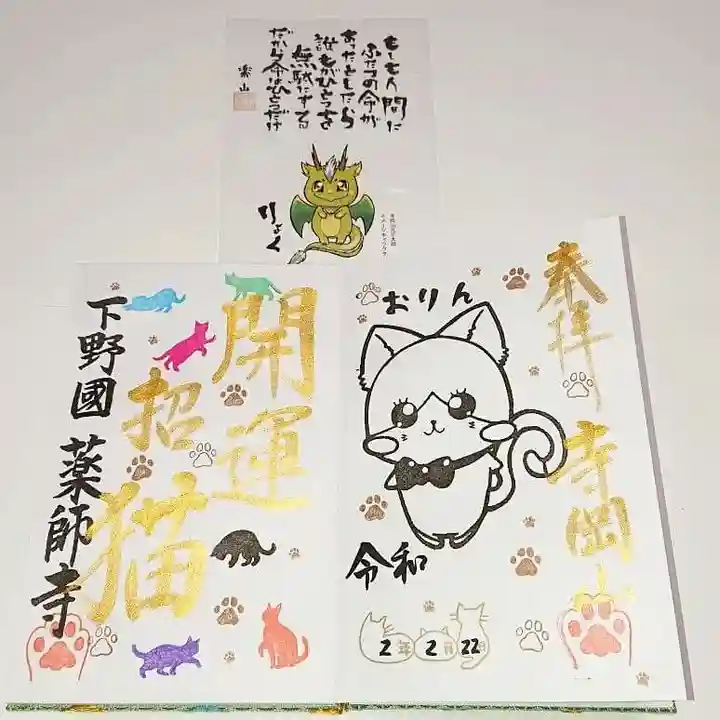 もしも人間に
ふたつの命が
あったとしたら
誰もがひとつを
無駄にする
だから命はひとつだけ
楽山
りょく
奉拝
寺岡山
おりん
令和
2年2月22日
開運
招猫
下野國 薬師寺